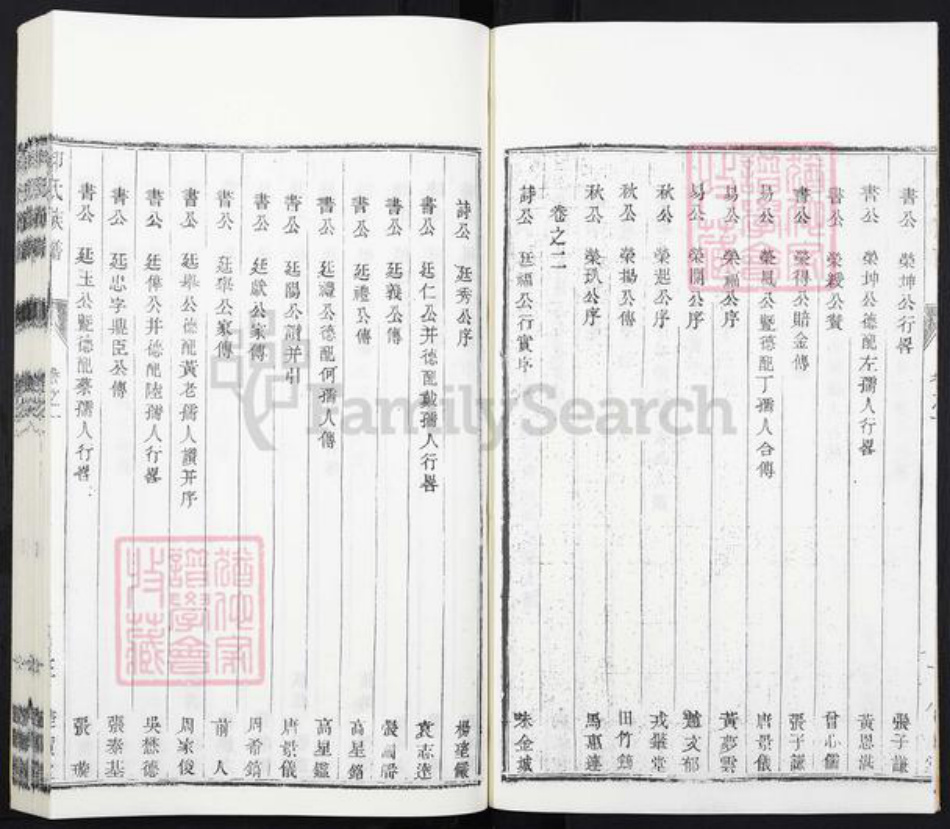 書公 榮坤公行畧 張子謙
書公 榮坤公德配左孺人行畧 黃恩洪
書公 榮級公贊 曾心儒
書公 榮得公賠金傳 張子謙
易公 榮 公暨德配丁孺人合傳 唐景儀
易公 榮福公序 黃夢雲
易公 榮 公序 文郁
秋公 榮起公序 戎 堂
秋公 榮揚公傳 田竹筠
秋公 榮玖公序 馬惠蓮
卷之二
詩公 廷福公行實序 味金城
詩公 廷秀公序 楊 嚴
書公 廷仁公并德配戴孺人行畧 袁志逵
書公 廷義公傳
書公 廷禮公傳 高星鎔
書公 廷禮公德配何孺人傳 高星鑑
書公 廷陽公謝并引 唐景儀
書公 廷獻公家傳 周希鎬
書公 廷舉公家傳 前人
書公 廷舉公德配黃老孺人讚并序 周家俊
書公 廷偉公并德配陸孺人行畧 吳楚德
書公 廷忠字龍臣公傳 張秦基
書公 廷玉公暨德配蔡孺人行畧 張
氏族譜
卷之一
猶他家譜學會收藏
猶他家譜學會收藏
FamilySearch